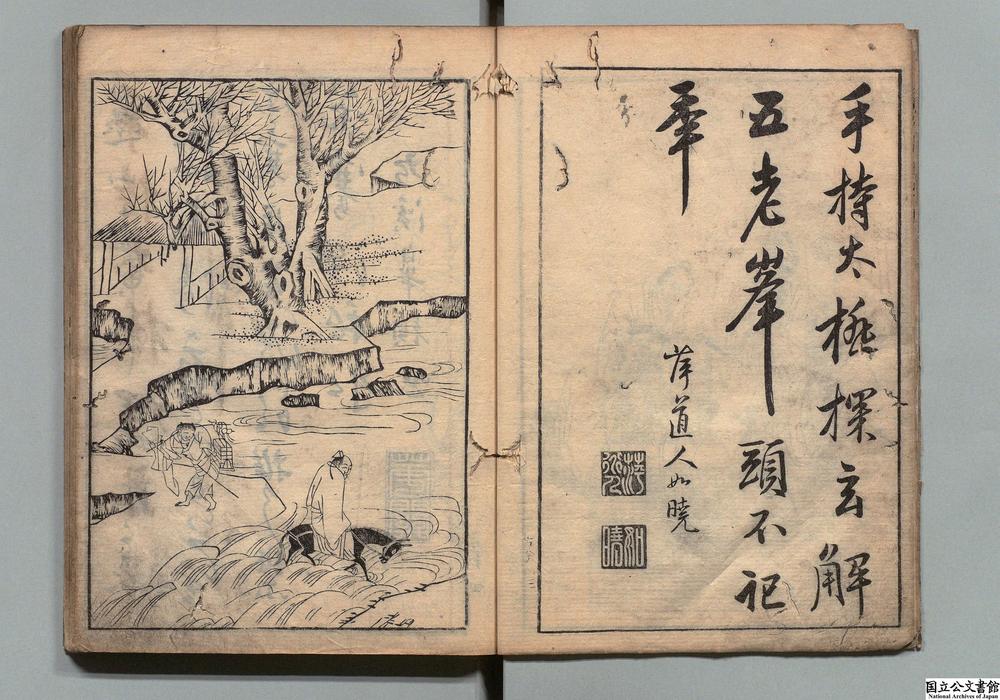 手持太極探玄解
五老峯頭不記
年
萍道人如曉
如曉
国立公文書館
National Archives of Japan